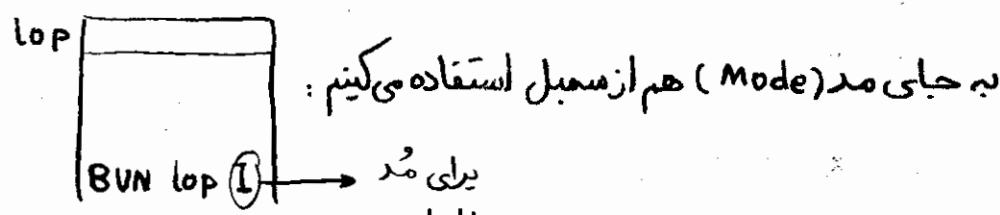 lop
به جای مد (Mode) هم از سمبل استفاده می‌کنیم :
BUN lop I → برای مُد